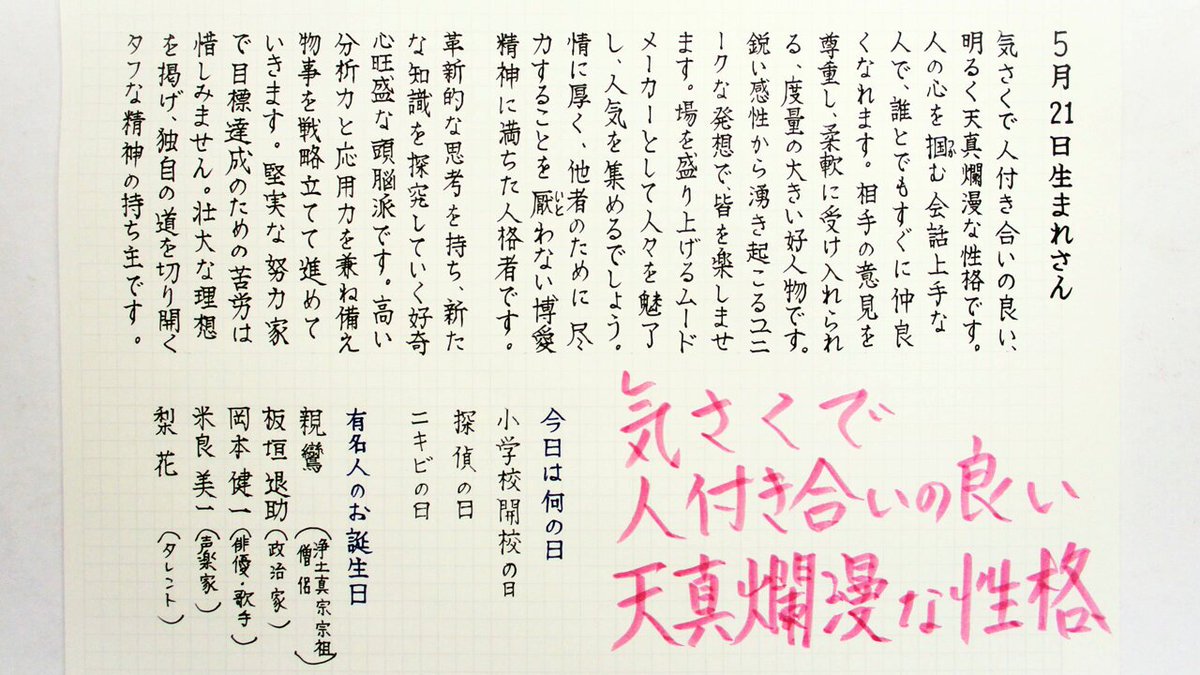 5月21日生まれさん
気さくで人付き合いの良い、
明るく天真爛漫な性格です。
人の心を掴む会話上手な
人で、誰とでもすぐに仲良
くなれます。相手の意見を
尊重し、柔軟に受け入れられ
る、度量の大きい好人物です。
鋭い感性から湧き起こるユニ
ークな発想で、皆を楽しませ
ます。場を盛り上げるムード
メーカーとして人々を魅了
し、人気を集めるでしょう。
情に厚く、他者のために尽
力することを厭わない博愛
精神に満ちた人格者です。
革新的な思考を持ち、新た
な知識を探究していく好奇
心旺盛な頭脳派です。高い
分析力と応用力を兼ね備え
物事を戦略立てて進めて
いきます。堅実な努力家
で目標達成のための苦労は
惜しみません。壮大な理想
を掲げ、独自の道を切り開く
タフな精神の持ち主です。
気さくで
人付き合いの良い
天真爛漫な性格
今日は何の日
小学校開校の日
探偵の日
ニキビの日
有名人のお誕生日
親鸞(浄土真宗宗祖 僧侶)
板垣退助(政治家)
岡本健一(俳優・歌手)
米良美一(声楽家)
梨花(タレント)